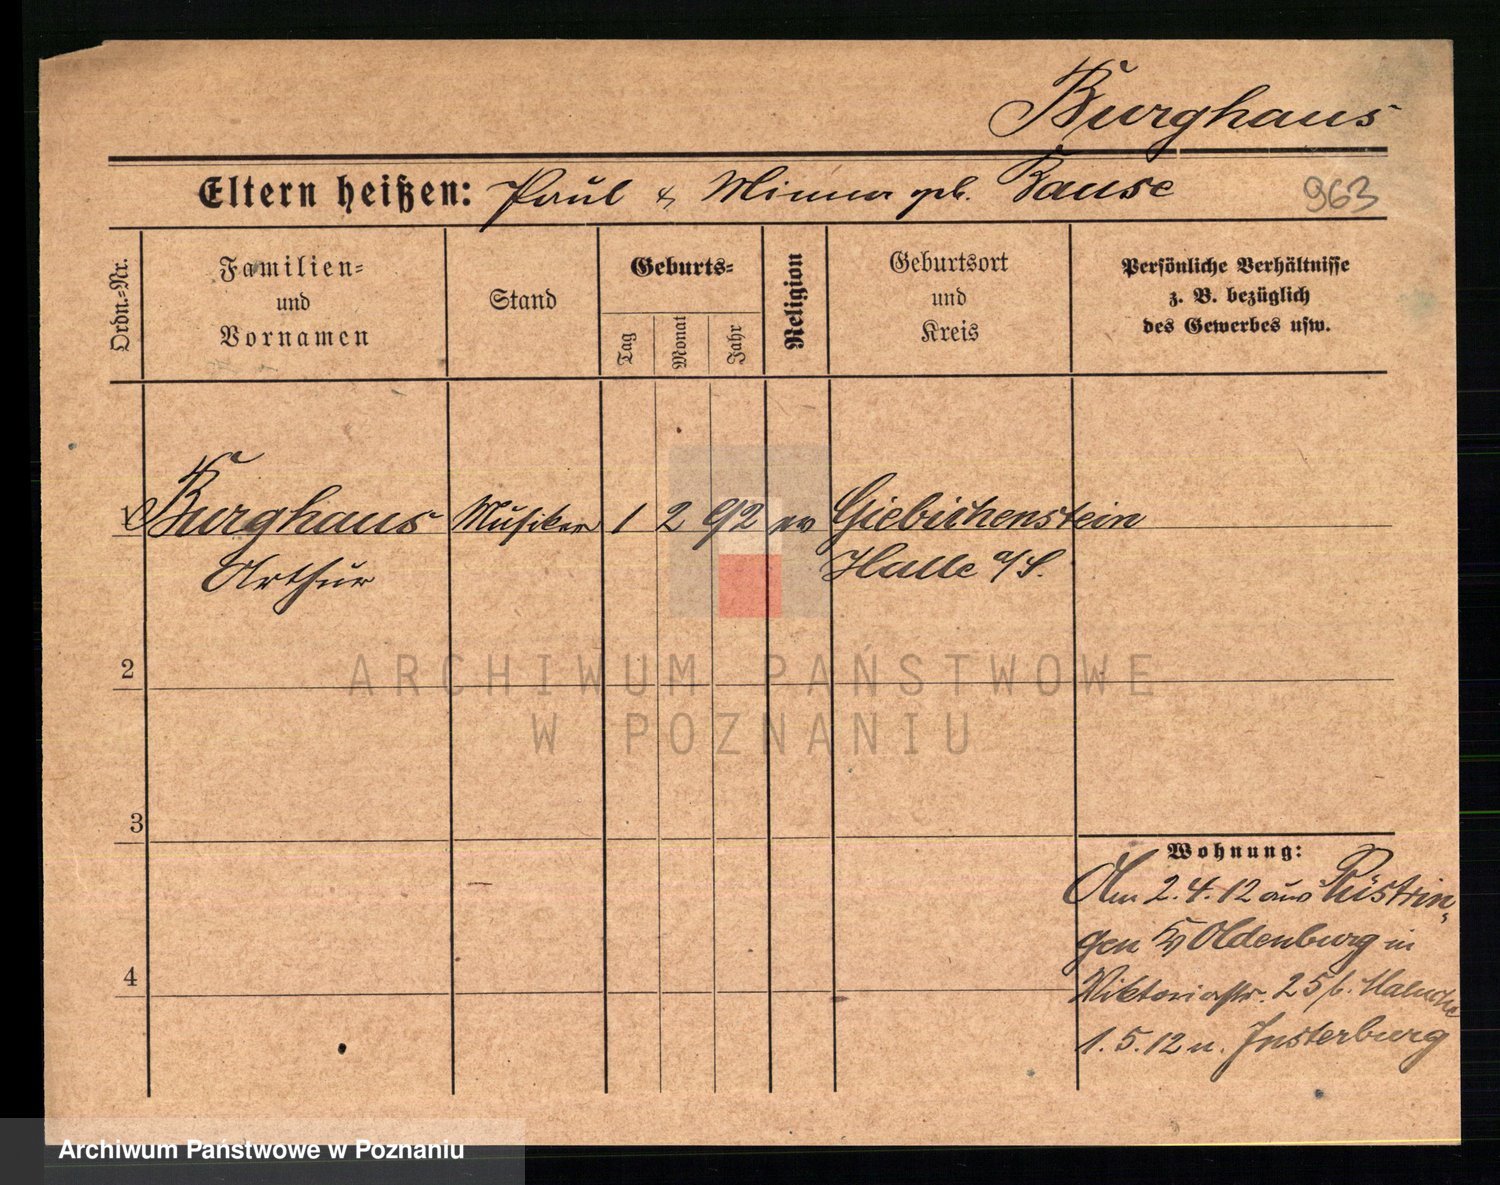 Burghaus
Eltern heißen: Paul & Minna geb. Bause
963
Ordn.=Nr.
Familien=
und
Vornamen
Stand
Geburts=
Tag
Monat
Jahr
Religion
Geburtsort
und
Kreis
Persönliche Verhältnisse
z. B. bezüglich
des Gewerbes usw.
1 Burghaus Musiker 1 2 92 ev Giebichenstein
Arthur Halle a/S.
2
3
4
Wohnung:
Am 2.4.12 aus Rüstrin-
gen Oldenburg in
Viktoriastr. 25 b.
1.5.12 n. Insterburg
ARCHIWUM PAŃSTWOWE
W POZNANIU
Archiwum Państwowe w Poznaniu